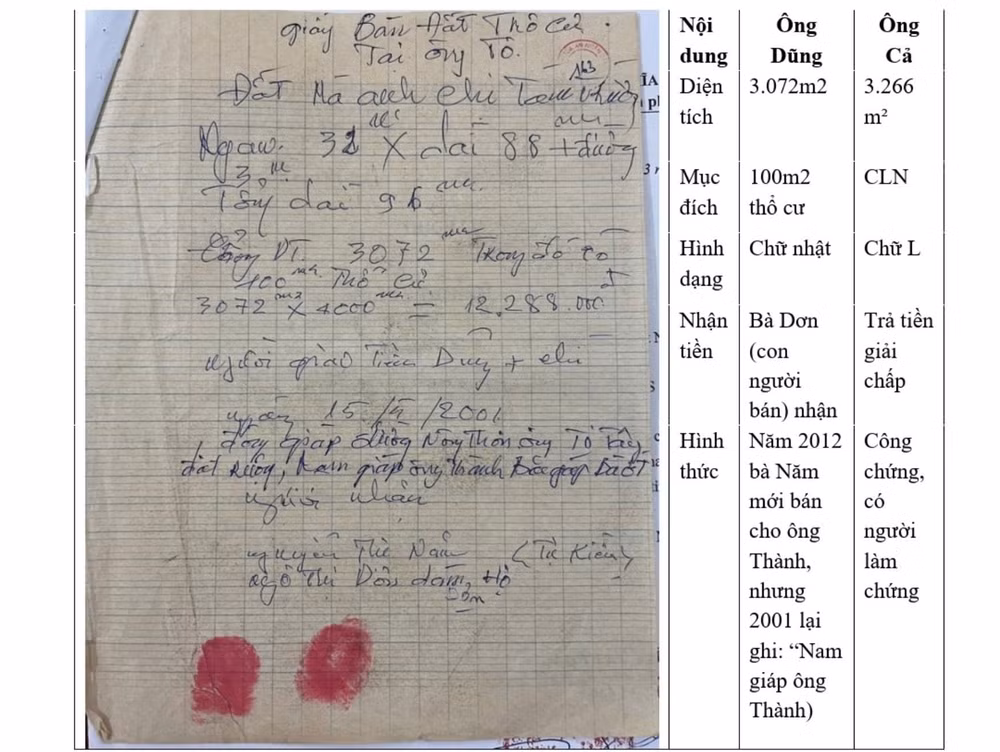 giấy Bán Đất Thổ Cư
Tại ông Tô.
163
Đất Mà anh chị
Ngan. 32 X dài 88 + đường
Tổng dài 96
Cộng DT. 3072 m2 Trong đó có
100 m2 Thổ Cư
3072 m2 X 4000 = 12.288.000
người giao Tiền Dũng + chi
ngày 15/5/2001
đông giáp đường Nông Thôn ông Tô Tây
đất ruộng, Nam giáp ông Thành Bắc giáp
người nhận
nguyễn Thị Năm (Tư Kiến)
ngô Thị Dơn
Nội dung
Ông Dũng
Ông Cả
Diện tích
3.072m2
3.266 m²
Mục đích
100m2 thổ cư
CLN
Hình dạng
Chữ nhật
Chữ L
Nhận tiền
Bà Dơn (con người bán) nhận
Trả tiền giải chấp
Hình thức
Năm 2012 bà Năm mới bán cho ông Thành, nhưng 2001 lại ghi: “Nam giáp ông Thành)
Công chứng, có người làm chứng